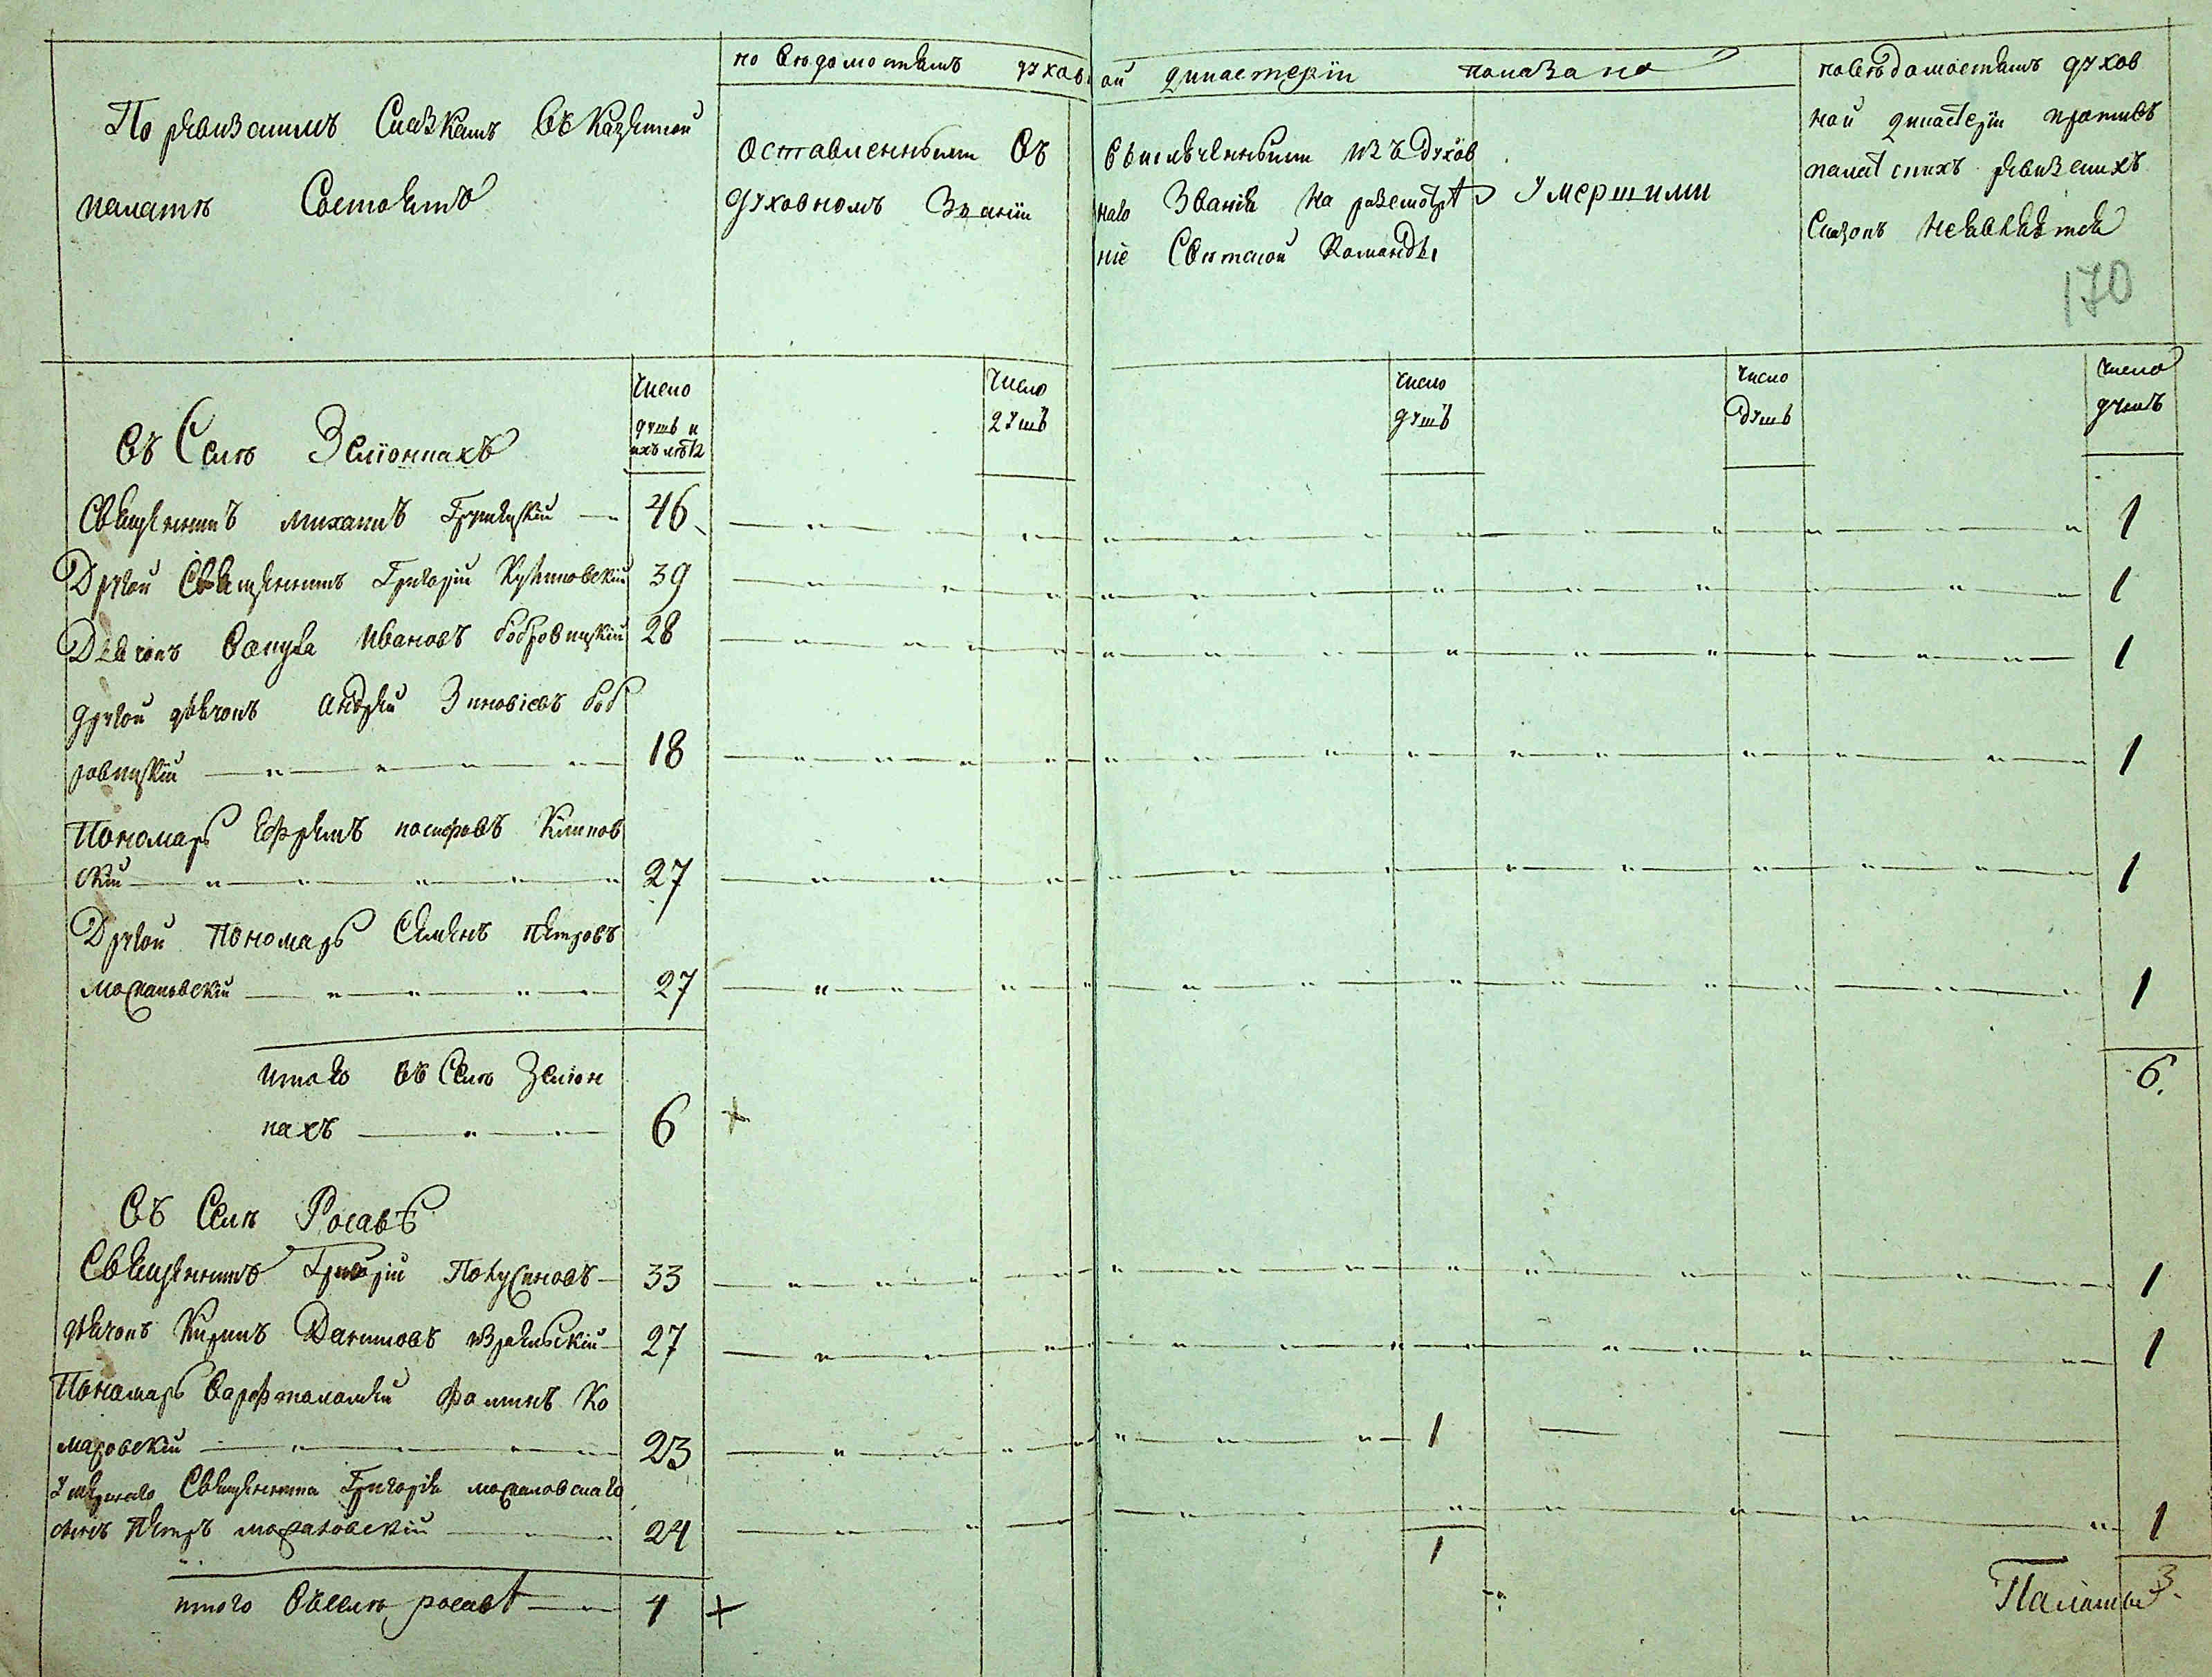 По ревизскимъ Сказкамъ въ казенной
палатѣ Состоитъ
по вѣдомостямъ духовной дикастеріи показано
Оставленными въ
духовномъ Званіи
Выключенными изъ духов
наго Званія на разсмотрѣ
ніе Свѣтской Команды
Умершими
по вѣдомостямъ духов
ной дикастеріи противъ
палатскихъ ревизскихъ
Сказокъ неявляется
170
Число
душъ и
ихъ лѣта
Число
душъ
Число
душъ
Число
душъ
Число
душъ
Въ Селѣ Зеліонкахъ
Священникъ михаилъ 46 1
Другой Священникъ Григорій 39 1
Діячокъ Ивановъ бобровицкій 28 1
другой дячокъ андрей Зиновіевъ боб
ровицкій 18 1
Пономарь Ефремъ
скій 27 1
Другой Пономарь Семенъ петровъ
моxнановскій 27 1
итого въ Селѣ Зеліон
кахъ 6 6
Въ Селѣ Росавѣ
Священникъ Григорій 33 1
дячокъ Кирилъ Даниловъ 27 1
Пономарь Варфтоломей Фоминъ Ко
маровскій 23 1
Умершаго Священника Григорія
сынъ Петръ 24 1
1
итого Въселѣ росавѣ 4 3
Палаты